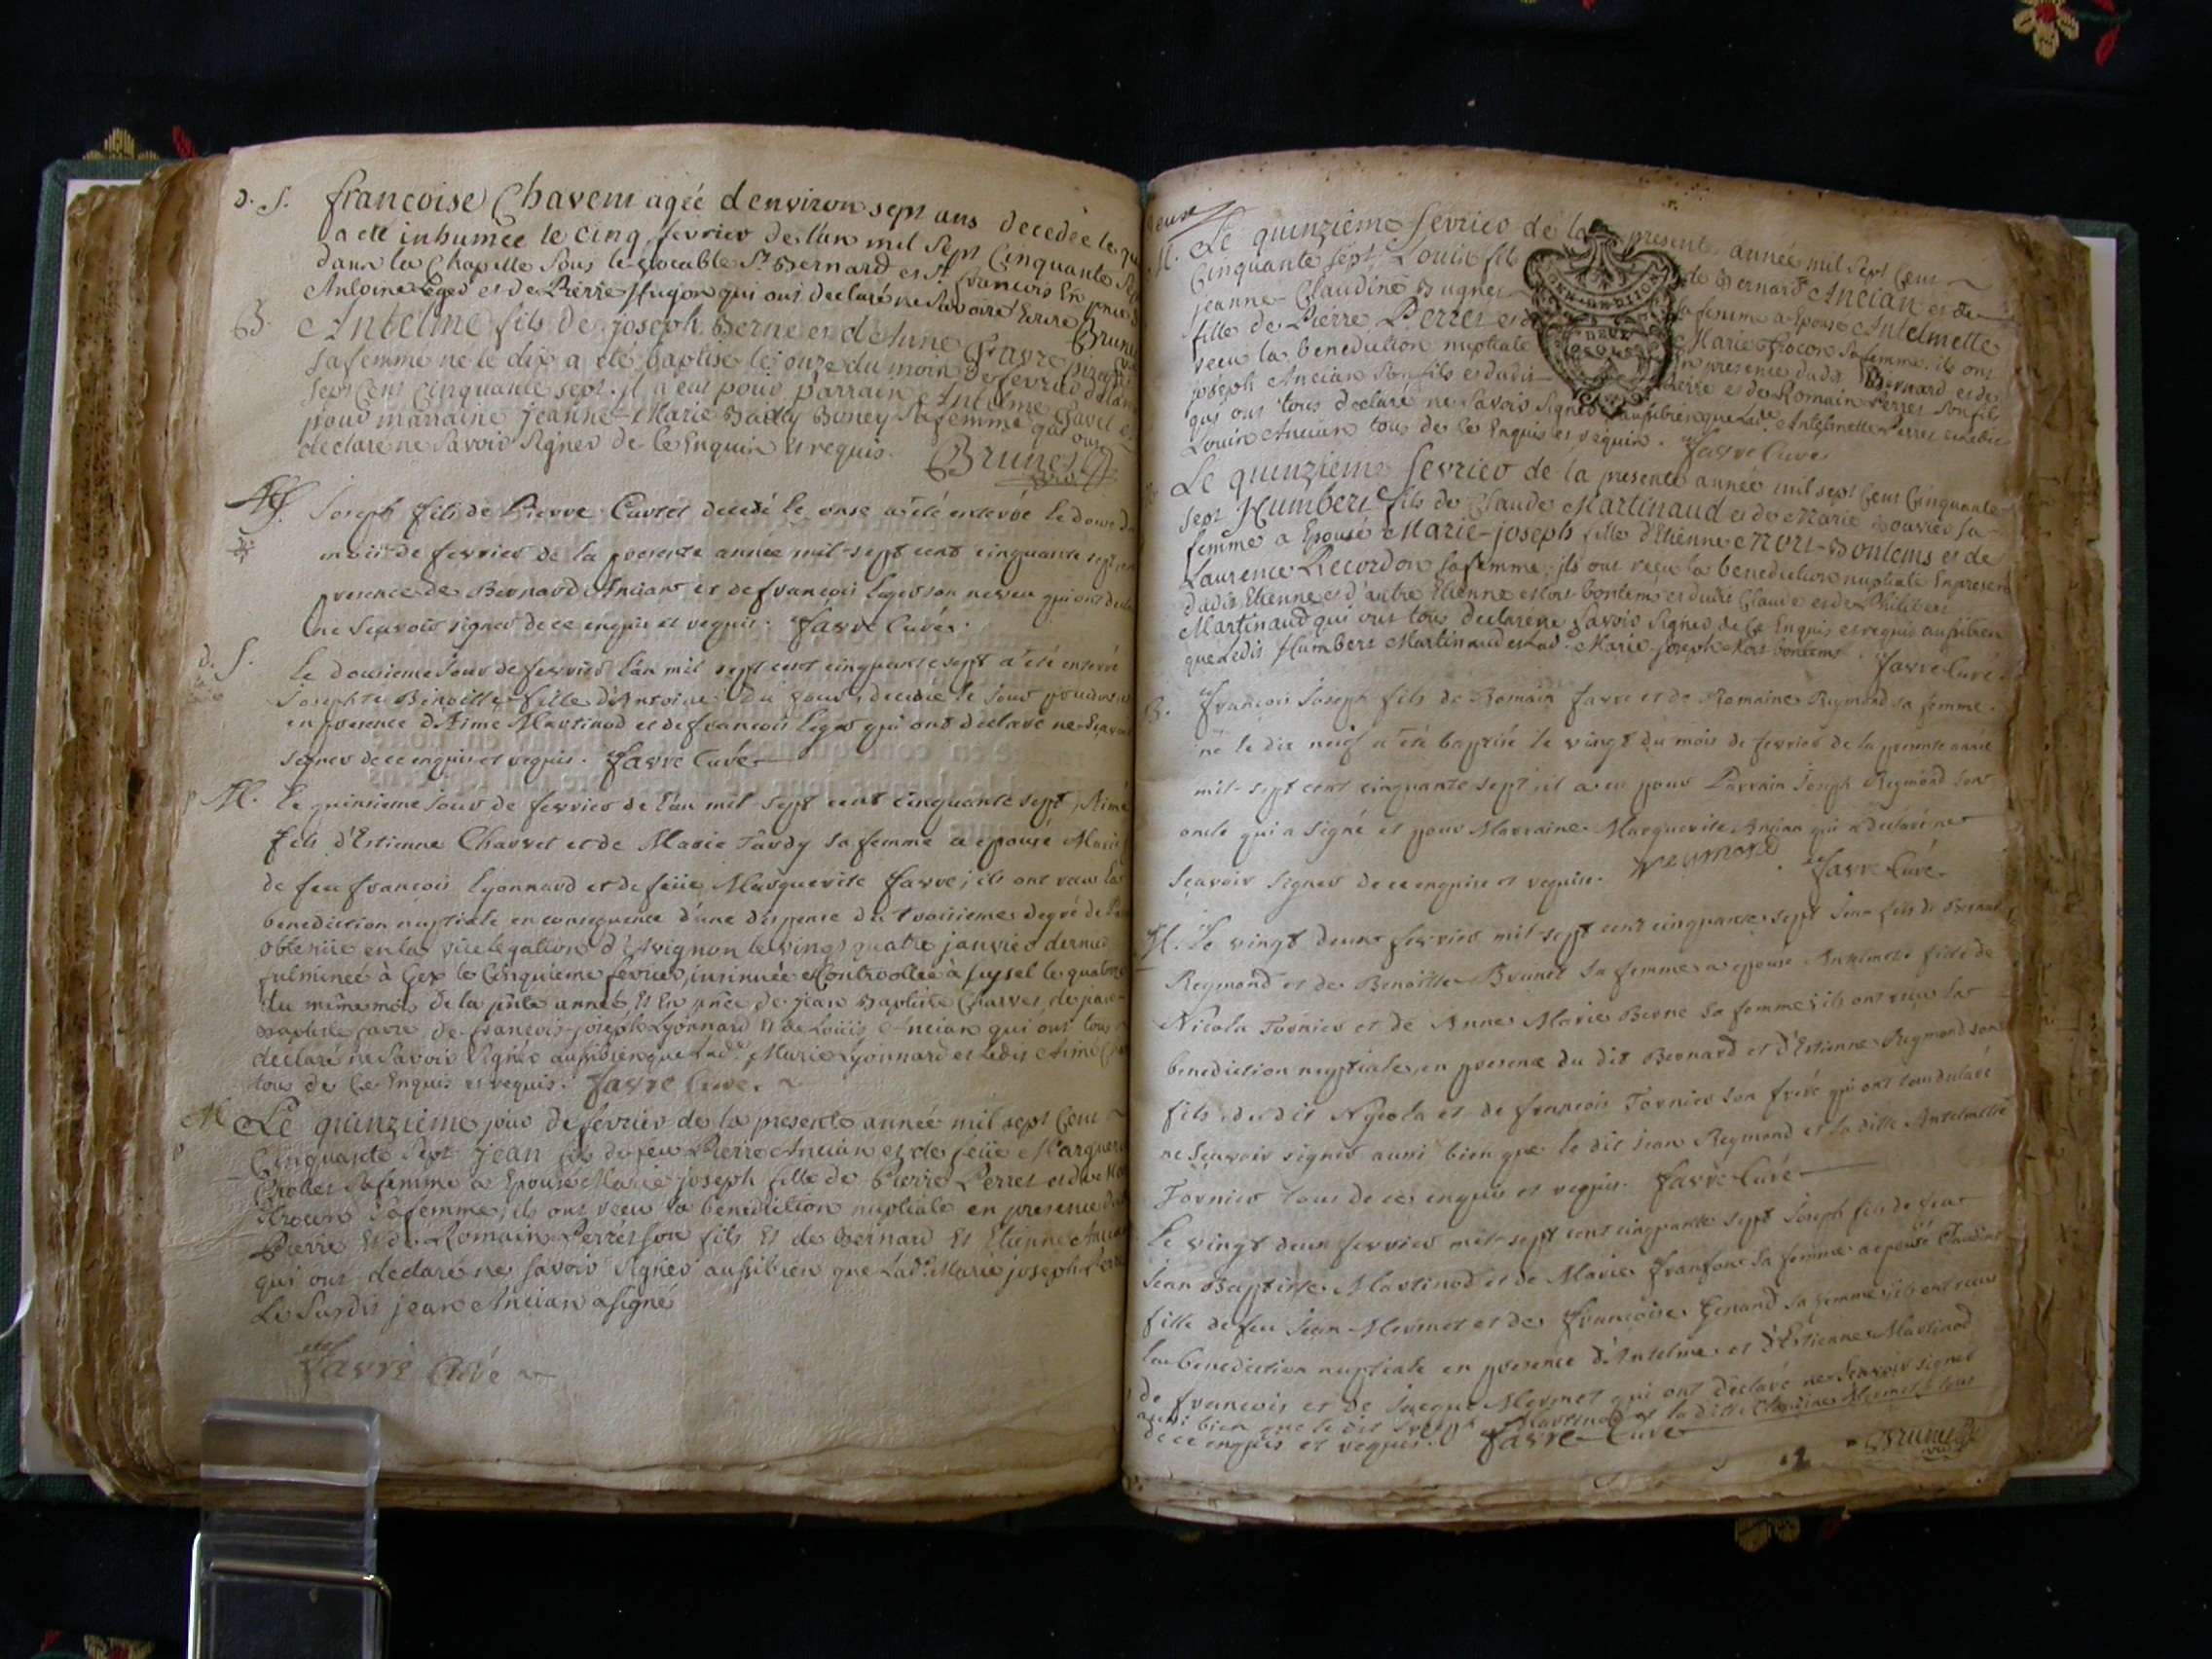 d. S. francoise Chavent agée denviron sept ans decedée le
a eté inhumée le cinq fevrier de l'an mil sept Cinquante sept
dans la Chapelle sous le vocable St Bernard et St francois En
Antoine Leger et de Pierre Hugon qui ont declaré ne Savoir Ecrire Brunet
B. Antelme fils de joseph Berne et de Anne Favre
sa femme ne le dix a eté baptisé le onze du mois de fevrier
sept Cent Cinquante sept. il a eut pour parrain Antelme
pour marraine jeanne-Marie Bailly sa femme qui ont
declare ne Savoir Signer de Ce Enquis et requis. Brunet
Joseph fils de Pierre Curtet decedé le onse a été enterré le douse du
mois de fevrier de la presente année mil-sept cent cinquante sept en
presence de Bernard Ancian et de francois Leger son neveu qui ont
ne Scavoir signer de ce enquis et requis. favre Curé.
d. S. Le dousieme jour de fevrier l'an mil sept cent cinquante sept a été enterré
Josephte Benoitte fille d'Antoine Du four decedée le jour
en presence d'Aimé Martinod et de francois Leger qui ont declaré ne Scavoir
signer de ce enquis et requis. favre Curé
M. Le quinsieme jour de fevrier de l'an mil sept cent cinquante sept, Aimé
fils d'Estienne Charvet et de Marie Tardy sa femme a epousé Marie
de feu francois Lyonnard et de feüe Marguerite favre; ils ont recu la
benediction nuptiale en consequence d'une dispense du troisieme degré de
obtenüe en la vice legation d'Avignon le vingt quatre janvier dernier
fulminée à Gex le Cinquieme fevrier, insinuée et Controollée à seysel le quatorze
du même mois de la pnte année Et En pnce de jean Baptiste Charvet, de jean-
Baptiste favre de francois-joseph Lyonnard et de Loüis Ancian qui ont tous
declaré ne Savoir Signer aussibienque Lad. Marie Lyonnard et Ledit Aimé
tous de Ce Enquis et requis. favre Curé.
M Le quinzieme jour de fevrier de la presente année mil sept Cent
Cinquante Sept jean fils de feu Pierre Ancian et de feüe Marguerite
Crollet Sa femme a Epousé Marie joseph fille de Pierre Perret et de
Sa femme; ils ont recu la benediction nuptiale en presence
Pierre et de Romain Perret son fils Et de Bernard Et Etienne Ancian
qui ont declaré ne savoir Signer aussibien que Lad. Marie joseph Perret
Le Susdit jean Ancian a signé
favre Curé
deux
M. Le quinzieme fevrier de la presente année mil Sept Cent
Cinquante sept, Louis fils de Bernard Ancian et de
jeanne-Claudine Bugnet sa femme a Epousé Antelmette
fille de Pierre Perret et de Marie sa femme. ils ont
recu la benediction nuptiale en presence dudit Bernard et de
joseph Ancian son fils et dudit Pierre et de Romain Perret Son fils
qui ont tous declaré ne Savoir Signer aussibien que Lad. Antelmette Perret
Louis Ancian tous de Ce Enquis et requis. favre Curé
Le quinzieme fevrier de la presente année mil sept Cent Cinquante
sept Humbert fils de Claude Martinaud et de Marie Bouvier sa
femme a Epousé Marie-joseph fille d'Etienne Mort-Bontems et de
Laurence Recordon sa femme; ils ont recu la benediction nuptiale En presence
dudit Etienne et d'autre Etienne Mort bontems et dudit Claude et de Philibert
Martinaud qui ont tous declaré ne Savoir Signer de Ce Enquis et requis aussibien
que Ledit Humbert Martinaud et Lad. Marie-joseph Mort bontems. favre Curé.
B. francois Joseph fils de Romain favre et de Romaine Reymond sa femme
né le dix neuf a été baptisé le vingt du mois de fevrier de la presente année
mil-sept cent cinquante sept, il a eu pour Parrain Joseph Reymond son
oncle qui a signé et pour Marraine Marguerite Ancian qui a declaré ne
sçavoir signer de ce enquise et requise. Reymond. favre Curé.
M. Le vingt deux fevrier mil-sept cent cinquante sept Jean fils de Bernard
Reymond et de Benoitte Brunet sa femme a epousé Antelmette fille de
Nicola Tornier et de Anne Marie Berne sa femme; ils ont recu la
benediction nuptiale en presence du dit Bernard et d'Estienne Reymond son
fils du dit Nicola et de francois Tornier son frere qui ont tous declaré
ne Scavoir signer aussi bien que le dit jean Reymond et la ditte Antelmette
Tornier tous de ce enquis et requis. favre Curé
Le vingt deux fevrier mil-sept cent cinquante sept Joseph fils de feu
Jean Baptiste Martinod et de Marie sa femme a epousé Claudine
fille de feu Jean Mermet et de francoise Genand sa femme; ils ont recu
la benediction nuptiale en presence d'Antelme et d'Estienne Martinod
de francois et de Jacque Mermet qui ont declaré ne Scavoir signer
aussi bien que le dit Joseph Martinod et la ditte Claudine Mermet tous
de ce enquis et requis. favre Curé
Brunet